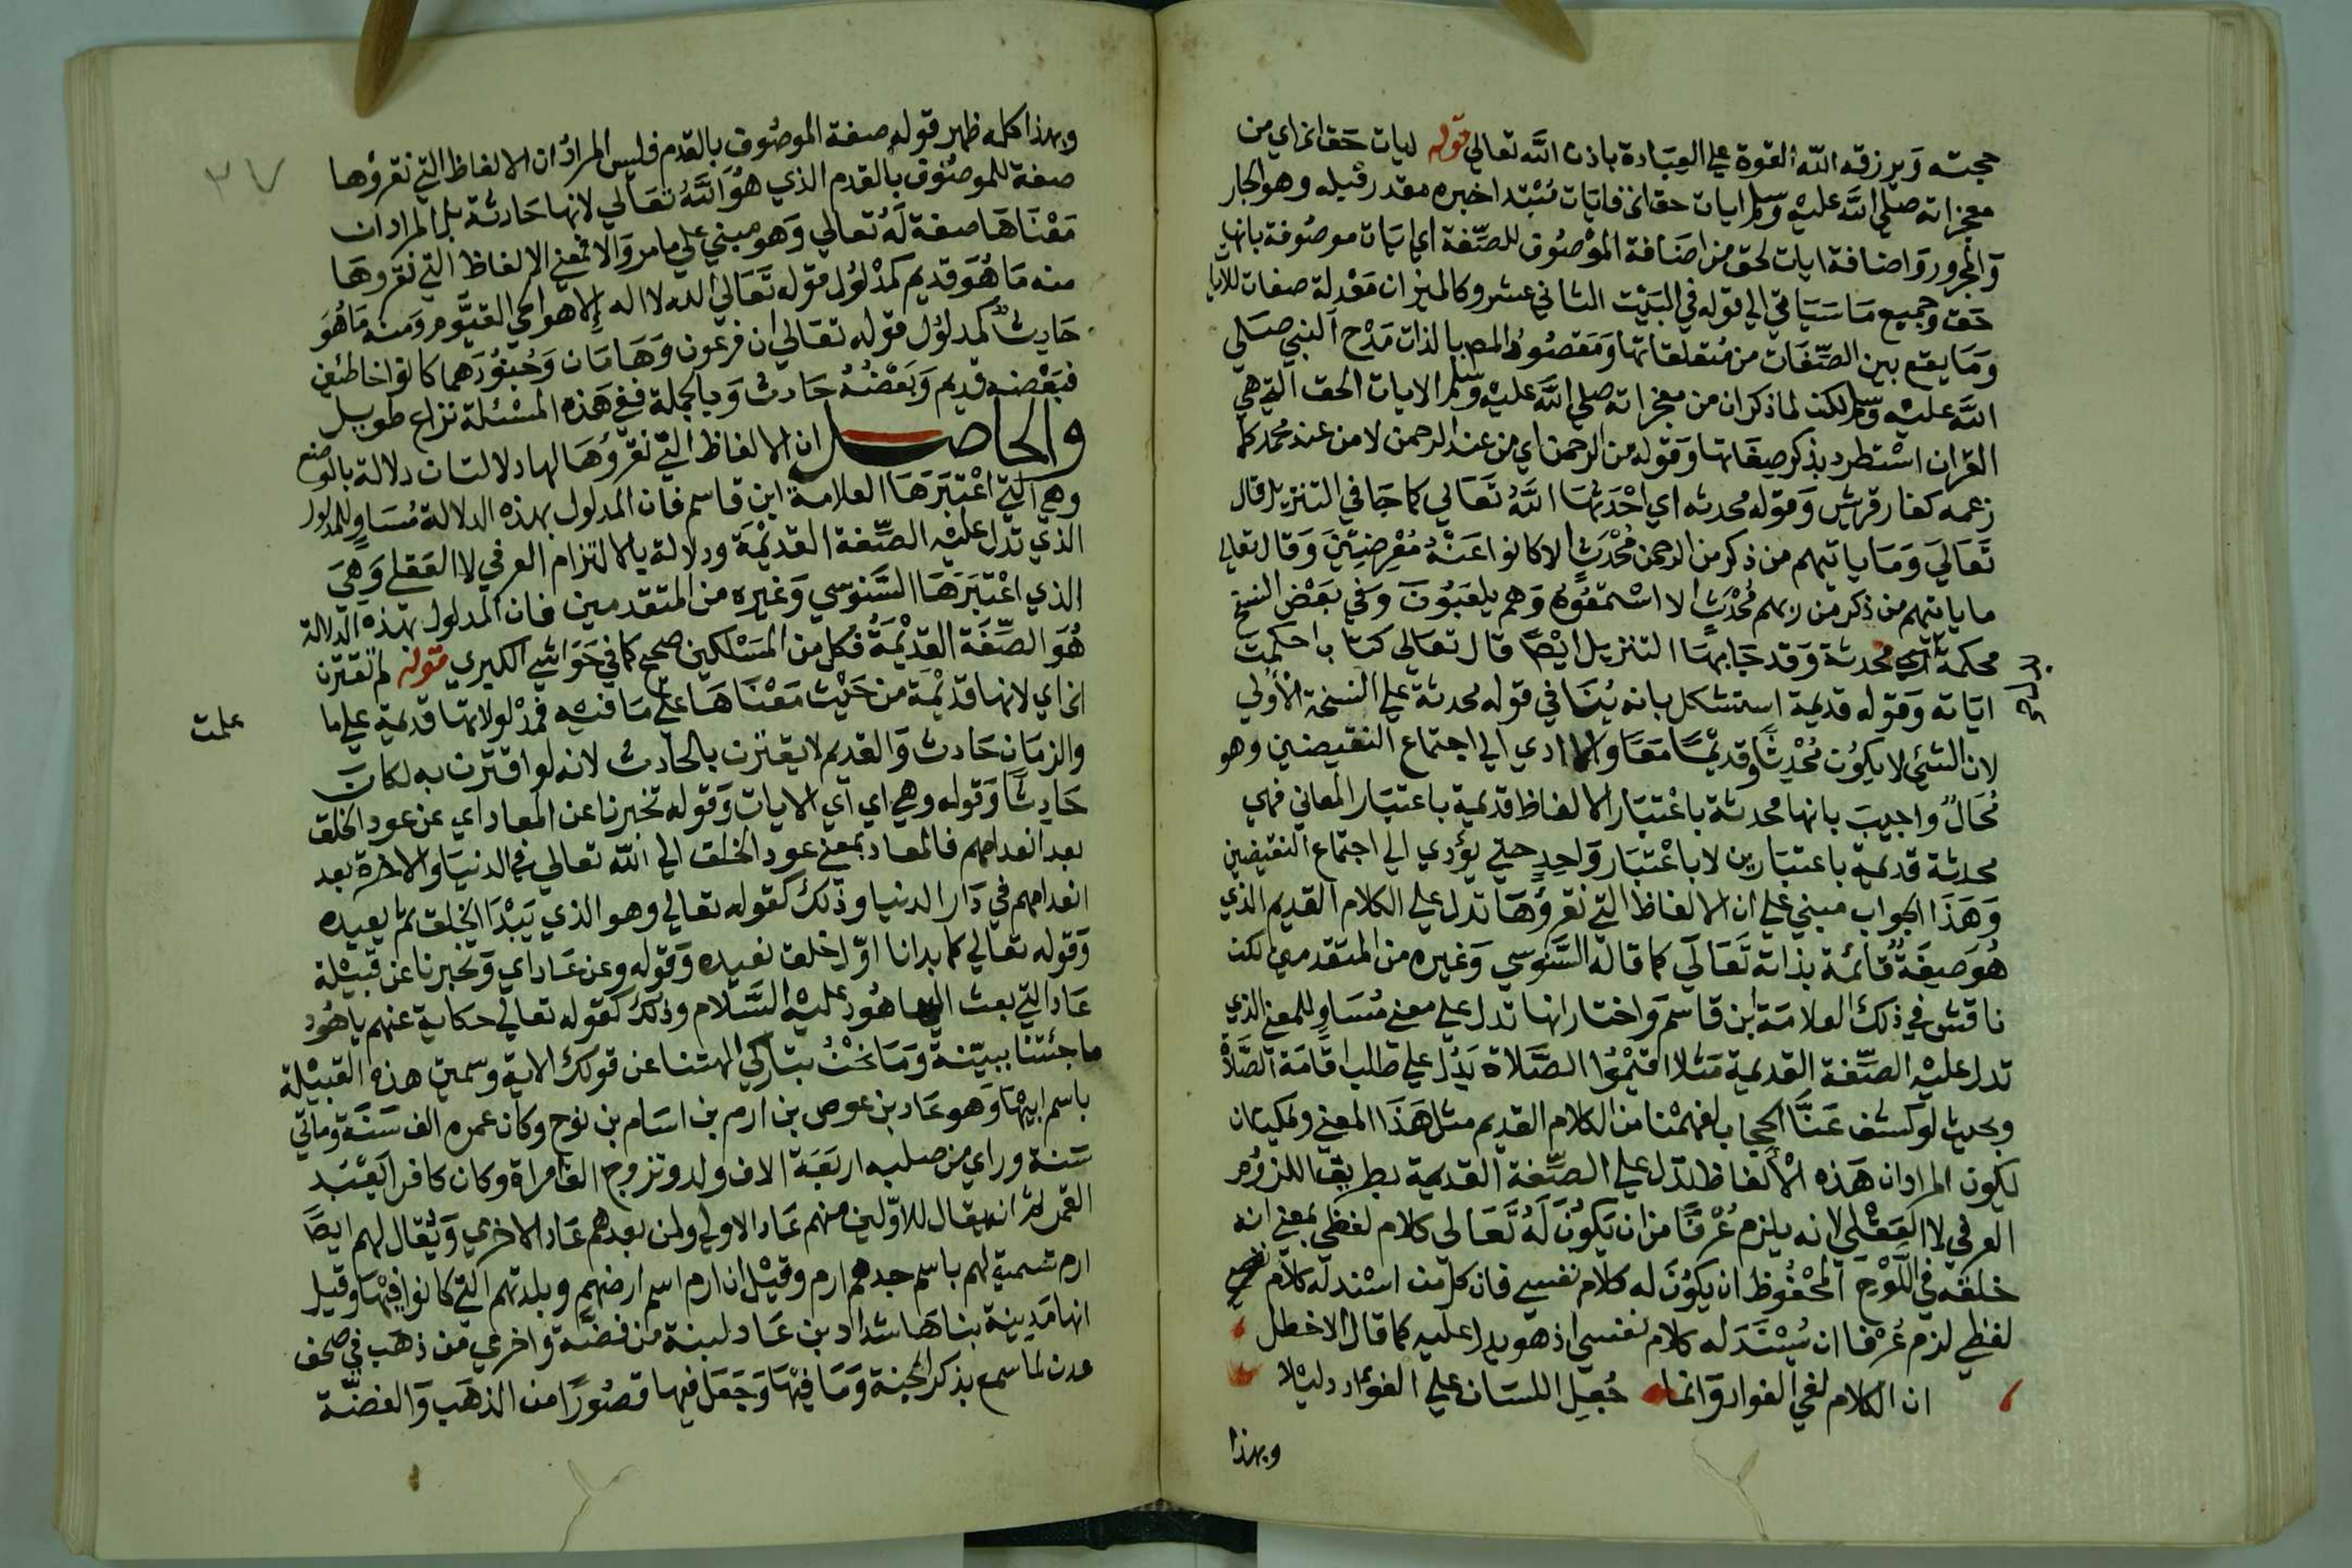 حجته ويرزقه الله القوة علي العبادة باذن الله تعالي قوله ايات حق الخ اي من
معجزاته صلي الله عليه وسلم ايات حق الخ فايات مبتدا خبره مقدر قبله وهو الجار
والمجرور واضافة ايات لحق من اضافة الموصوف للصفة اي ايات موصوفة بانها
حق وجميع ما سياتي الي قوله في البيت الثاني عشر وكالميزان معدلة صفات للايا
وما يقع بين الصفات من متعلقاتها ومقصود المص بالذات مدح النبي صلي
الله عليه وسلم لكن لما ذكر ان من معجزاته صلي الله عليه وسلم الايات الحق التي هي
القران استطرد بذكر صفاتها وقوله من الرحمن اي من عند الرحمن لا من عند محمد كما
زعمه كفار قريش وقوله محدثه اي احدثها الله تعالي كما جا في التنزيل قال
تعالي وما ياتيهم من ذكر من الرحمن محدث الا كانوا عنه معرضين وقال تعالي
ما ياتيهم من ذكر من ربهم محدث الا استمعوه وهم يلعبون وفي بعض النسخ
محكمة اي محدثة وقد جا بهذا التنزيل ايضا قال تعالى كتاب احكمت
اياته وقوله قديمة استشكل بانه ينافي قوله محدثة علي النسخة الاولي
لان الشئ لا يكون محدثا وقديما معا والا ادي الي اجتماع النقيضين وهو
محال واجيب بانها محدثة باعتبار الالفاظ قديمة باعتبار المعاني فهي
محدثة قديمة باعتبارين لا باعتبار واحد حتي يؤدي الي اجتماع النقيضين
وهذا الجواب مبني علي ان الالفاظ التي نقرؤها تدل علي الكلام القديم الذي
هو صفة قائمة بذاته تعالي كما قاله السنوسي وغيره من المتقدمين لكن
ناقش في ذلك العلامة ابن قاسم واختار انها تدل علي معني مساو للمعني الذي
تدل عليه الصفة القديمة مثلا اقيموا الصلاة يدل علي طلب اقامة الصلاة
وبحيث لو كشف عنا الحجاب لفهمنا من الكلام القديم مثل هذا المعني ويمكن ان
يكون المراد ان هذه الالفاظ تدل علي الصفة القديمة بطريق اللزوم
العرفي لا العقلي لانه يلزم عرفا من ان يكون له تعالي كلام لفظي بمعني انه
خلقه في اللوح المحفوظ ان يكون له كلام نفسي فان كل من اسند له كلام
لفظي لزم عرفا ان يسند له كلام نفسي اذ هو يدل عليه كما قال الاخطل
ان الكلام لفي الفواد وانما جعل اللسان علي الفؤاد دليلا
وبهذا
٣٧
وبهذا كله ظهر قوله صفة الموصوف بالقدم فليس المراد ان الالفاظ التي نقرؤها
صفة للموصوف بالقدم الذي هو الله تعالي لانها حادثة بل المراد ان
معناها صفة له تعالي وهو مبني علي ما مر والا فمعني الالفاظ التي نقروها
منه ما هو قديم كمدلول قوله تعالي الله لا اله الا هو الحي القيوم ومنه ما هو
حادث كمدلول قوله تعالي ان فرعون وهامان وجنودهما كانوا خاطئين
فبعضه قديم وبعضه حادث وبالجملة ففي هذه المسئلة نزاع طويل
والحاصل ان الالفاظ التي نقرؤها لها دلالتان دلالة بالوضع
وهي التي اعتبرها العلامة ابن قاسم فان المدلول بهذه الدلالة مساو للمدلول
الذي تدل عليه الصفة القديمة ودلالة بالالتزام العرفي لا العقلي وهي
الذي اعتبرها السنوسي وغيره من المتقدمين فان المدلول بهذه الدلالة
هو الصفة القديمة فكل من المسلكين صحيح كما في حواشي الكبري قوله لم تقترن
الخ اي لانها قديمة من حيث معناها علي ما فيه فمدلولاتها قديمة علي ما
علمت
والزمان حادث والقديم لا يقترن بالحادث لانه لو اقترن به لكان
حادثا وقوله وهي اي اي الايات وقوله تخبرنا عن المعاد اي عن عود الخلق
بعد انعدامهم فالمعاد بمعني عود الخلق الي الله تعالي في الدنيا والاخرة بعد
انعدامهم في دار الدنيا وذلك كقوله تعالي وهو الذي يبدا الخلق ثم يعيده
وقوله تعالي كما بدانا اول خلق نعيده وقوله وعن عاد اي وتخبرنا عن قبيلة
عاد التي بعث اليها هود عليه السلام وذلك كقوله تعالي حكاية عنهم ياهود
ما جئتنا ببينة وما نحن بتاركي الهتنا عن قولك الاية وسميت هذه القبيلة
باسم ابيها وهو عاد بن عوص بن ارم بن اسام بن نوح وكان عمره الف سنة ومأتي
سنة وراي من صلبه اربعة الاف ولد وتزوج الف امراة وكان كافرا يعبد
القمر ثم انه يقال للاولين منهم عاد الاولي ولمن بعدهم عاد الاخري ويقال لهم ايضا
ارم تسمية لهم باسم جدهم ارم وقيل ان ارم اسم ارضهم وبلدتهم التي كانوا فيها وقيل
انها مدينة بناها شداد بن عاد لبنة من فضة واخري من ذهب في صحف
عدن لما سمع بذكر الجنة وما فيها وجعل فيها قصورا من الذهب والفضة